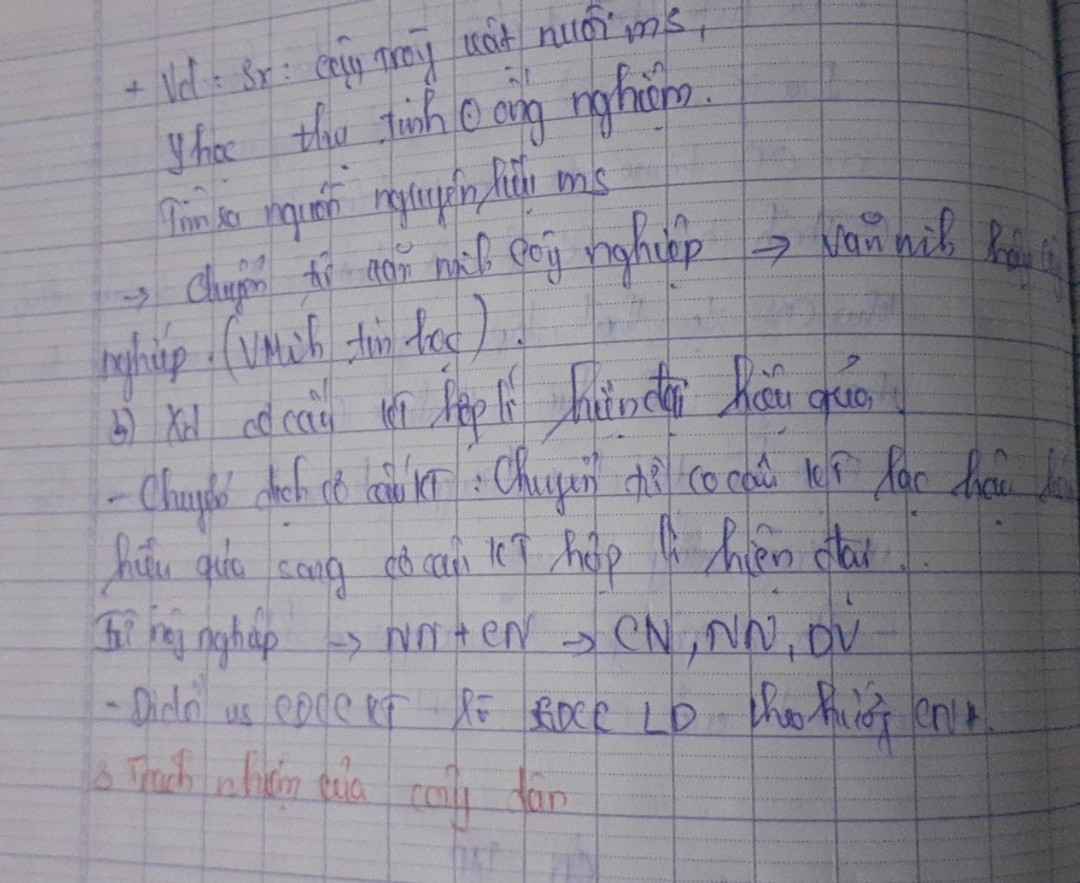 + Vd: Sx: cây trồng vật nuôi ms,
y học thụ tinh ống nghiệm.
Tìm ra nguồn nguyên liệu ms
→ chuyển từ văn mih côg nghiệp → văn mih hậu
nghiệp. (VMih tin học).
b) XD cơ cấu KT hợp lí hiện đại hiệu quả
- Chuyển dịch cơ cấu KT: Chuyển từ cơ cấu KT lạc hậu
hiệu quả sang cơ cấu KT hợp lí hiện đại.
Từ nôg nghiệp → NN + CN → CN, NN, DV
- KT LĐ theo hướg CNH.
3 Trách nhiệm của côg dân